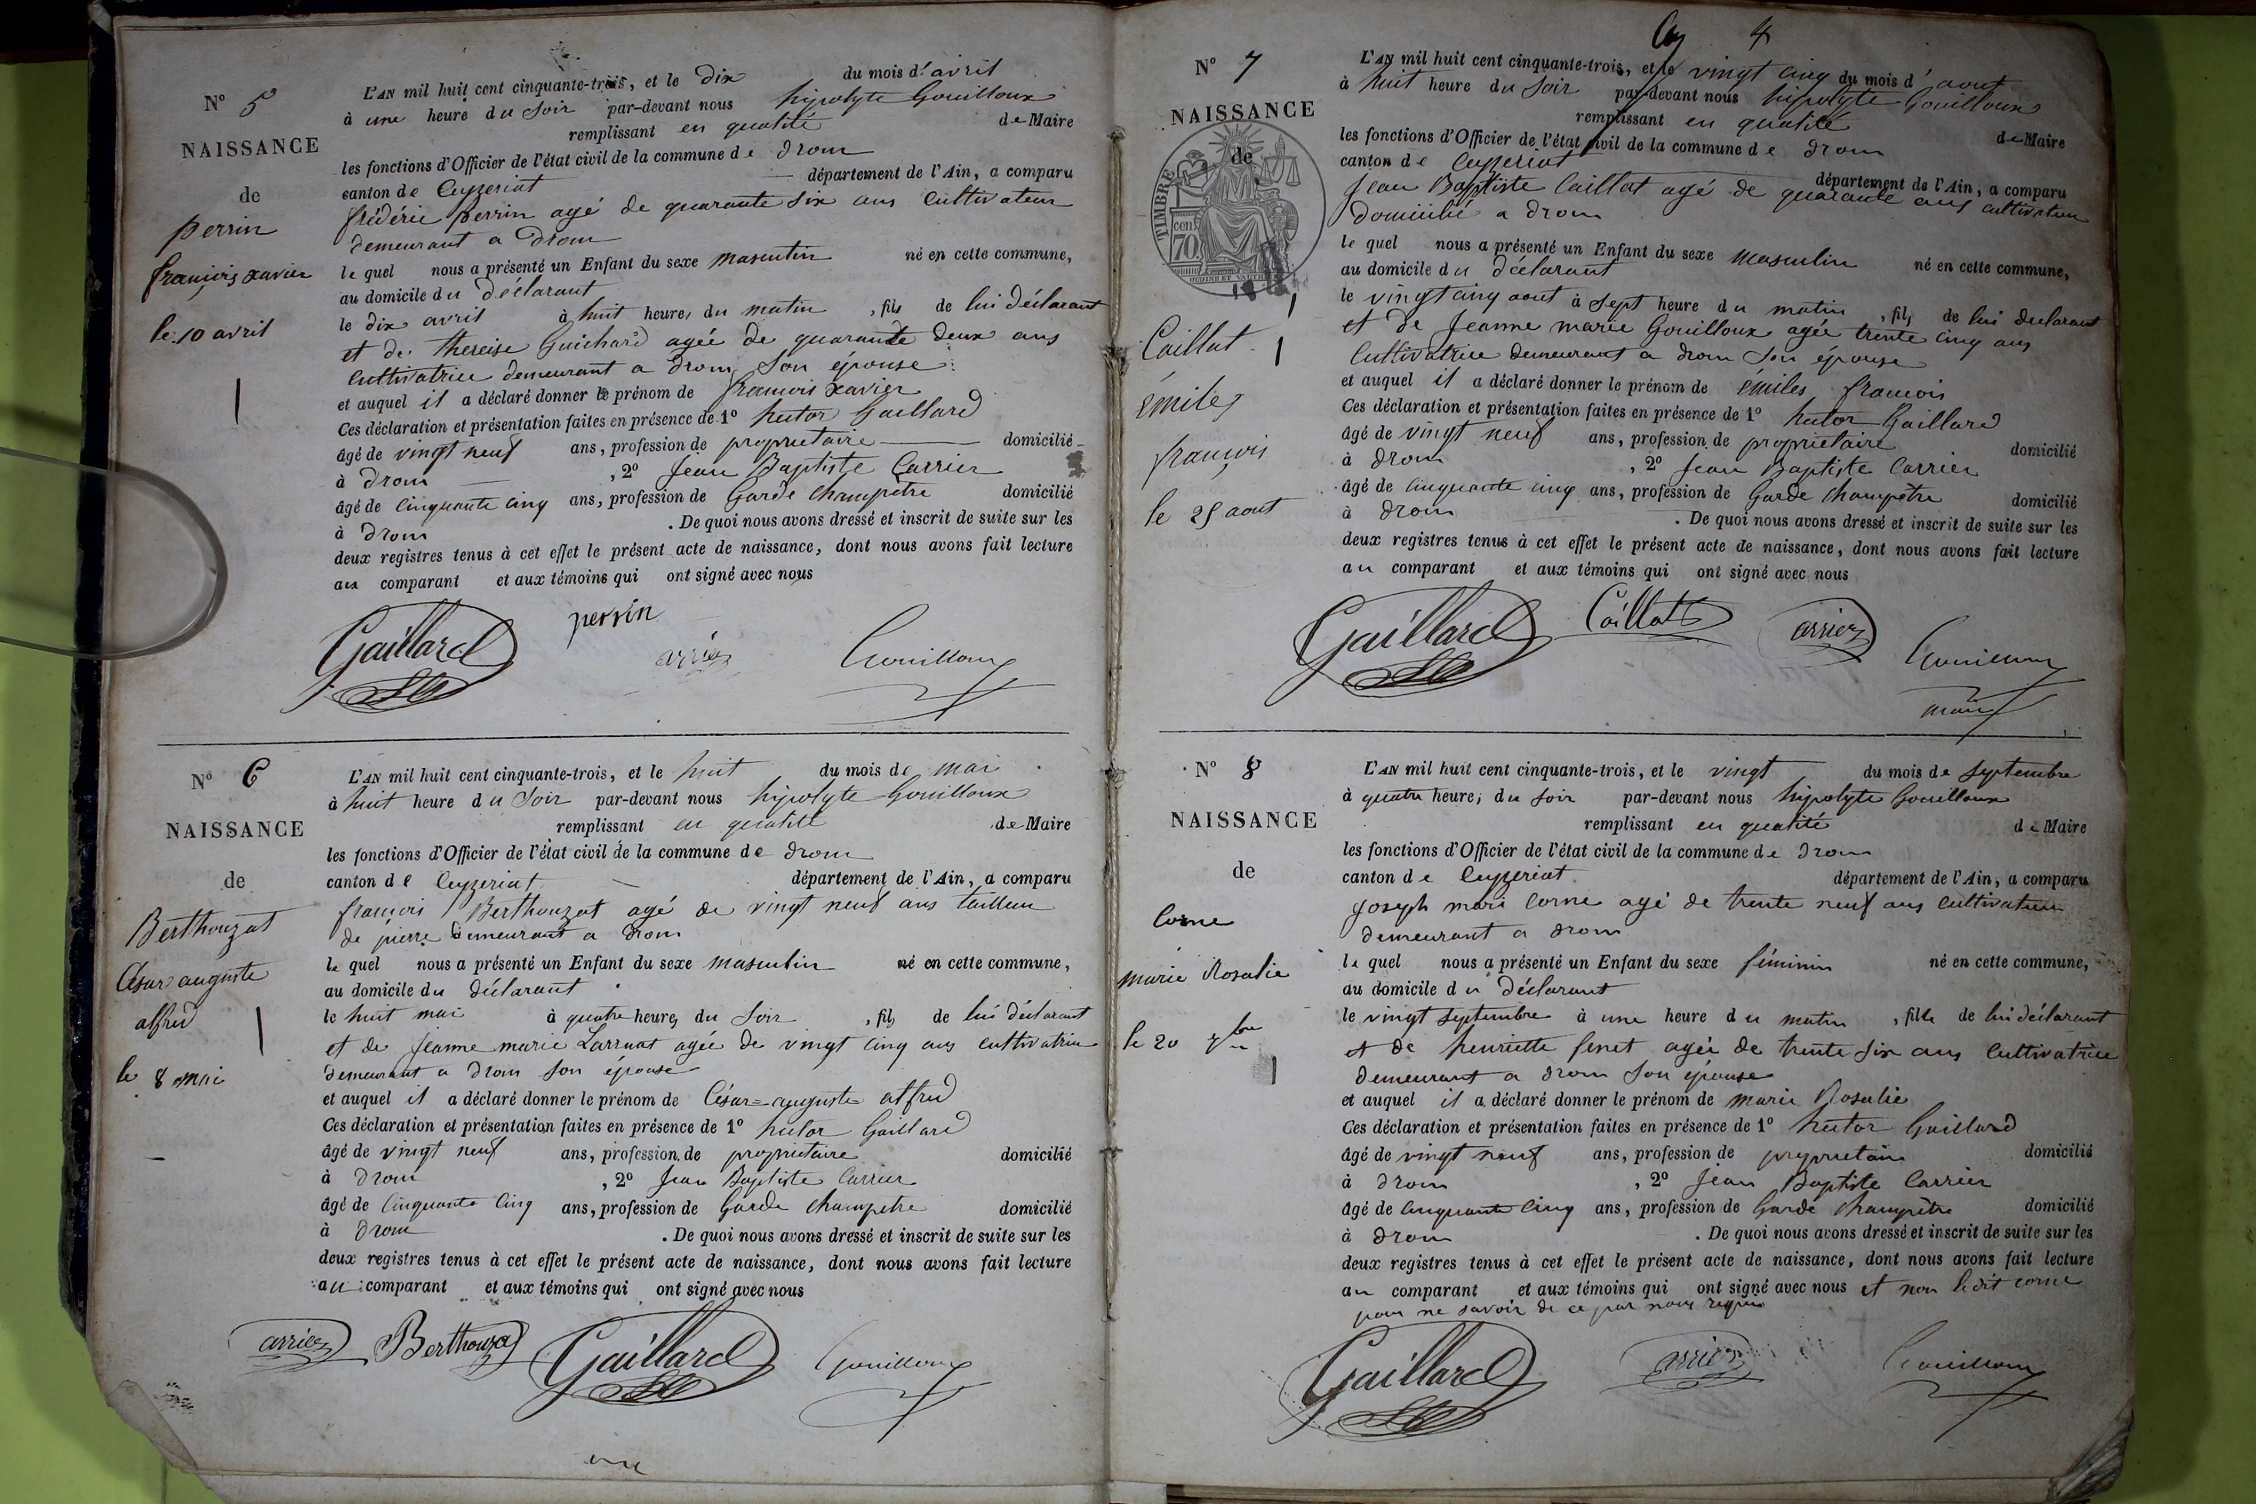 N° 5
NAISSANCE
de
perrin
françois xavier
le 10 avril
L'AN mil huit cent cinquante-trois, et le dix du mois d'avril
à une heure du soir par-devant nous hipolyte Gouilloux
remplissant en qualité de Maire
les fonctions d'Officier de l'état civil de la commune de drom
canton de Ceyzeriat département de l'Ain, a comparu
frédéric perrin agé de quarante six ans cultivateur
demeurant a Drom
lequel nous a présenté un Enfant du sexe masculin né en cette commune,
au domicile du déclarant
le dix avril à huit heures du matin, fils de lui déclarant
et de thereise Guichard agée de quarante deux ans
Cultivatrice demeurant a drom son épouse
et auquel il a déclaré donner le prénom de francois xavier
Ces déclaration et présentation faites en présence de 1° hector Gaillard
âgé de vingt neuf ans, profession de proprietaire domicilié
à drom, 2° jean Baptiste Carrier
âgé de cinquante cinq ans, profession de Garde champêtre domicilié
à Drom. De quoi nous avons dressé et inscrit de suite sur les
deux registres tenus à cet effet le présent acte de naissance, dont nous avons fait lecture
au comparant et aux témoins qui ont signé avec nous
Gaillard perrin arrier Gouilloux
N° 6
NAISSANCE
de
Berthouzat
César auguste
alfred
le 8 mai
L'AN mil huit cent cinquante-trois, et le huit du mois de mai
à huit heure du soir par-devant nous hipolyte Gouilloux
remplissant en qualité de Maire
les fonctions d'Officier de l'état civil de la commune de drom
canton de Ceyzeriat département de l'Ain, a comparu
francois Berthouzat agé de vingt neuf ans tailleur
de pierre demeurant a drom
lequel nous a présenté un Enfant du sexe masculin né en cette commune,
au domicile du déclarant
le huit mai à quatre heures du soir, fils de lui déclarant
et de jeanne marie Larruat agée de vingt cinq ans cultivatrice
demeurant a drom son épouse
et auquel il a déclaré donner le prénom de César=auguste alfred
Ces déclaration et présentation faites en présence de 1° hector Gaillard
âgé de vingt neuf ans, profession de proprietaire domicilié
à drom, 2° jean Baptiste Carrier
âgé de cinquante cinq ans, profession de Garde champetre domicilié
à drom. De quoi nous avons dressé et inscrit de suite sur les
deux registres tenus à cet effet le présent acte de naissance, dont nous avons fait lecture
au comparant et aux témoins qui ont signé avec nous
arrier Berthouzat Gaillard Gouilloux
4
N° 7
NAISSANCE
de
TIMBRE
70 cen
Caillat
émiles
françois
le 25 aout
L'AN mil huit cent cinquante-trois, et le vingt cinq du mois d'aout
à huit heure du soir par-devant nous hipolyte Gouilloux
remplissant en qualité de Maire
les fonctions d'Officier de l'état civil de la commune de drom
canton de Ceyzeriat département de l'Ain, a comparu
jean Baptiste Caillat agé de quarante ans cultivateur
domicilié a drom
lequel nous a présenté un Enfant du sexe masculin né en cette commune,
au domicile du déclarant
le vingt cinq aout à sept heure du matin, fils de lui declarant
et de jeanne marie Gouilloux agée trente cinq ans
Cultivatrice demeurant a drom son épouse
et auquel il a déclaré donner le prénom de émiles francois
Ces déclaration et présentation faites en présence de 1° hector Gaillard
âgé de vingt neuf ans, profession de proprietaire domicilié
à drom, 2° jean Baptiste Carrier
âgé de cinquante cinq ans, profession de Garde champêtre domicilié
à drom. De quoi nous avons dressé et inscrit de suite sur les
deux registres tenus à cet effet le présent acte de naissance, dont nous avons fait lecture
au comparant et aux témoins qui ont signé avec nous
Gaillard Caillat arrier Gouilloux
maire
N° 8
NAISSANCE
de
Corne
marie Rosalie
le 20 7bre
L'AN mil huit cent cinquante-trois, et le vingt du mois de septembre
à quatre heures du soir par-devant nous hipolyte Gouilloux
remplissant en qualité de Maire
les fonctions d'Officier de l'état civil de la commune de drom
canton de Ceyzeriat département de l'Ain, a comparu
joseph marie Corne agé de trente neuf ans cultivateur
demeurant a drom
lequel nous a présenté un Enfant du sexe féminin né en cette commune,
au domicile du déclarant
le vingt septembre à une heure du matin, fille de lui déclarant
et de henriette fenet agée de trente six ans Cultivatrice
demeurant a drom son épouse
et auquel il a déclaré donner le prénom de marie Rosalie
Ces déclaration et présentation faites en présence de 1° hector Gaillard
âgé de vingt neuf ans, profession de proprietaire domicilié
à drom, 2° jean Baptiste Carrier
âgé de cinquante cinq ans, profession de Garde champêtre domicilié
à drom. De quoi nous avons dressé et inscrit de suite sur les
deux registres tenus à cet effet le présent acte de naissance, dont nous avons fait lecture
au comparant et aux témoins qui ont signé avec nous et non ledit corne
pour ne savoir de ce par nous requis
Gaillard arrier Gouilloux